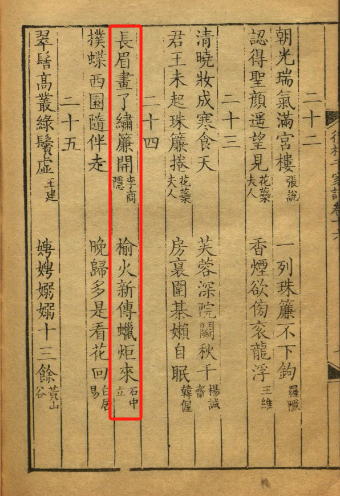 二十二
朝光瑞氣滿宮樓 張說 一列珠簾不下鉤
認得聖顏遙望見 花蘂夫人 香煙欲傍袞龍浮 王維
二十三
清曉妝成寒食天 芙蓉深院鬭秋千 楊誠齋
君王未起珠簾捲 花蘂夫人 房裏圍棊嬾自眠 韓偓
二十四
長眉畫了繡簾開 李商隱 榆火新傳蠟炬來 石中立
撲蝶西園隨伴走 晚歸多是看花回 白居易
二十五
翠髻高叢綠鬢虛 王建 娉娉嫋嫋十三餘 黃山谷